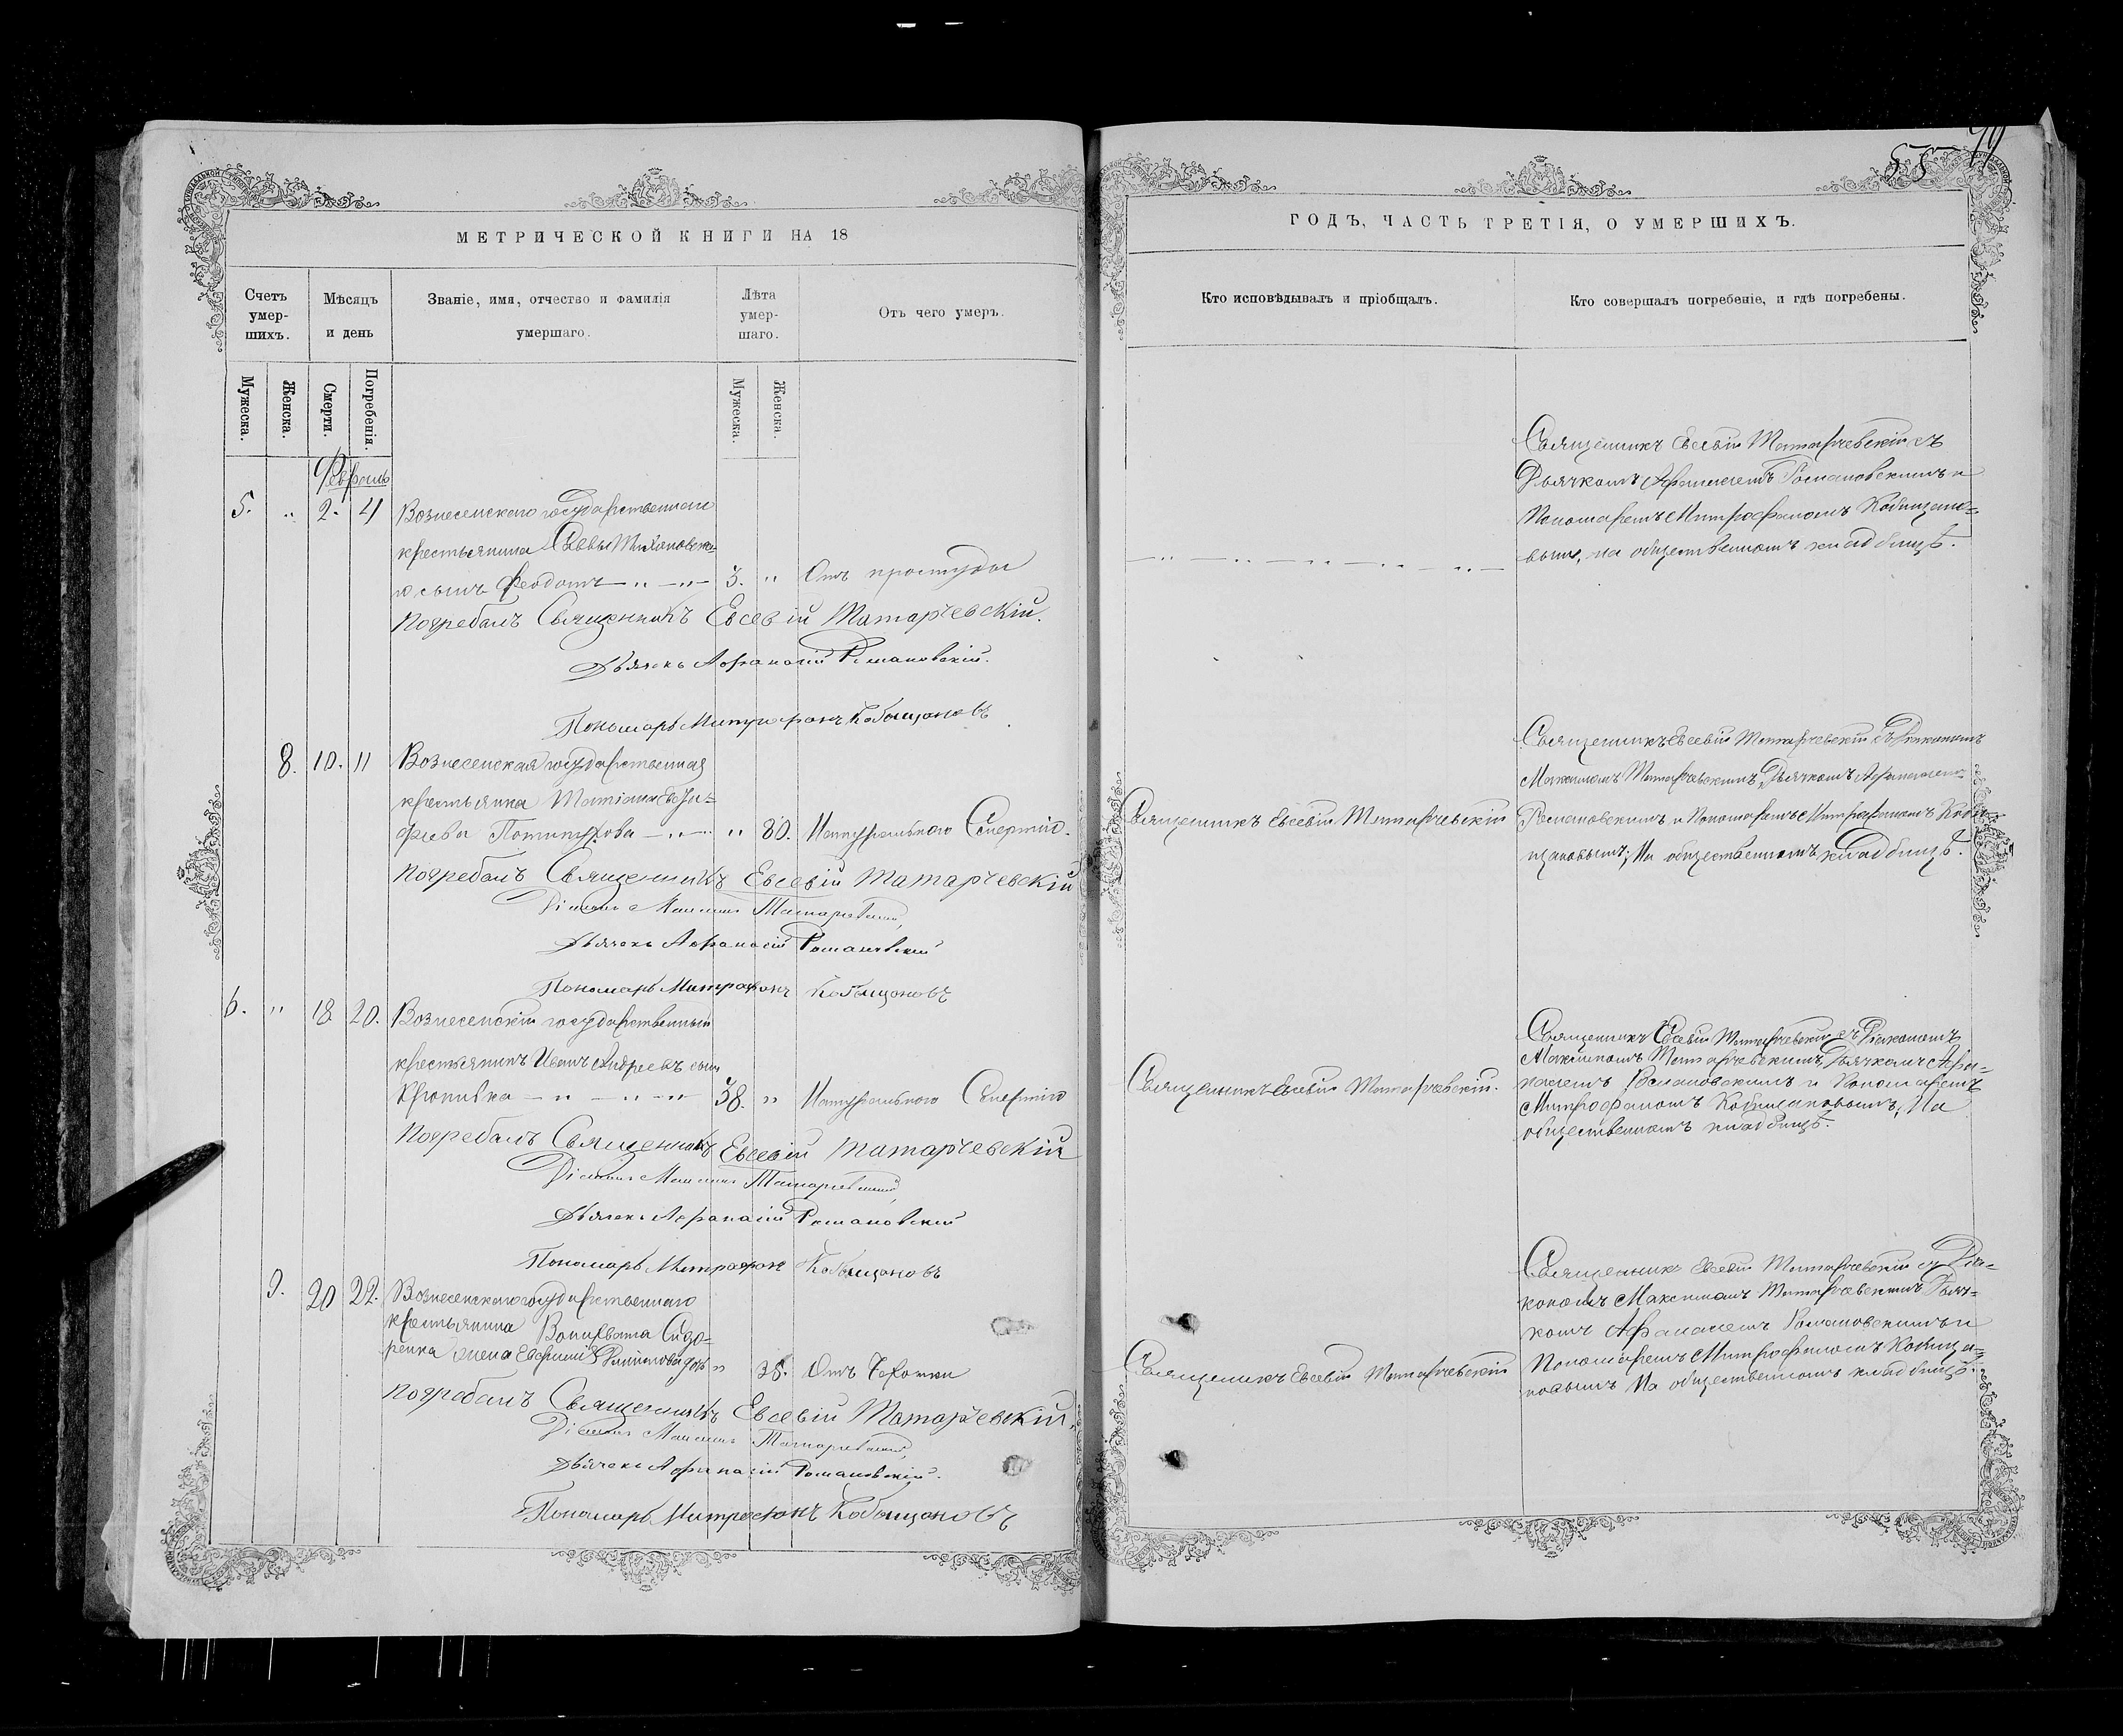 МЕТРИЧЕСКОЙ КНИГИ НА 18
Счетъ умер-шихъ.
Мѣсяцъ и день
Званіе, имя, отчество и фамилія умершаго.
Лѣта умер-шаго.
Отъ чего умеръ.
Мужеска.
Женска.
Смерти.
Погребенія.
Мужеска.
Женска.
Февраль
5. " 2. 4 Вознесенскаго государственнаго
крестьянина Саввы
сынъ Феодотъ — " — " — 3. " Отъ простуды
Погребалъ Священникъ Евсевій Татарчевскій.
Дьячекъ Афанасій Романовскій.
Пономарь Митрофанъ Кобыщановъ
8. 10. 11 Вознесенская государственная
крестьянка Татіана
фіева — " — " 80. Натуральною Смертію.
Погребалъ Священникъ Евсевій Татарчевскій
Діаконъ Максимъ Татарчевскій,
Дьячекъ Афанасій Романовскій
Пономарь Митрофанъ Кобыщановъ
6. " 18 20. Вознесенскій государственный
крестьянинъ Иванъ Андреевъ сынъ
— " — " — " 38. " Натуральною Смертію
Погребалъ Священникъ Евсевій Татарчевскій
Діаконъ Максимъ Татарчевскій,
Дьячекъ Афанасій Романовскій
Пономарь Митрофанъ Кобыщановъ
9. 20 22. Вознесенскаго государственнаго
крестьянина Сидо-
ренка жена Евфимія " 38. Отъ Чахотки
Погребалъ Священникъ Евсевій Татарчевскій,
Діаконъ Максимъ Татарчевскій,
Дьячекъ Афанасій Романовскій.
Пономарь Митрофанъ Кобыщановъ
55
ГОДЪ, ЧАСТЬ ТРЕТІЯ, О УМЕРШИХЪ.
Кто исповѣдывалъ и пріобщалъ.
Кто совершалъ погребеніе, и гдѣ погребены.
Священникъ Евсевій Татарчевскій съ
Дьячкомъ Афанасіемъ Романовскимъ и
Пономаремъ Митрофаномъ Кобищано-
вымъ, на общественномъ кладбищѣ.
Священникъ Евсевій Татарчевскій съ Діакономъ
Максимомъ Татарчевскимъ, Дьячкомъ Афанасіемъ
Священникъ Евсевій Татарчевскій
Романовскимъ и Пономаремъ Митрофаномъ Коби-
щановымъ; На общественномъ кладбищѣ.
Священникъ Евсевій Татарчевскій съ Діакономъ
Максимомъ Татарчевскимъ, Дьячкомъ Афа-
Священникъ Евсевій Татарчевскій.
насіемъ Романовскимъ и Пономаремъ
Митрофаномъ Кобищановымъ, На
общественномъ кладбищѣ.
Священникъ Евсевій Татарчевскій съ Діа-
кономъ Максимомъ Татарчевскимъ Дьяч-
комъ Афанасіемъ Романовскимъ и
Священникъ Евсевій Татарчевскій
Пономаремъ Митрофаномъ Кобища-
новымъ На общественномъ кладбищѣ.